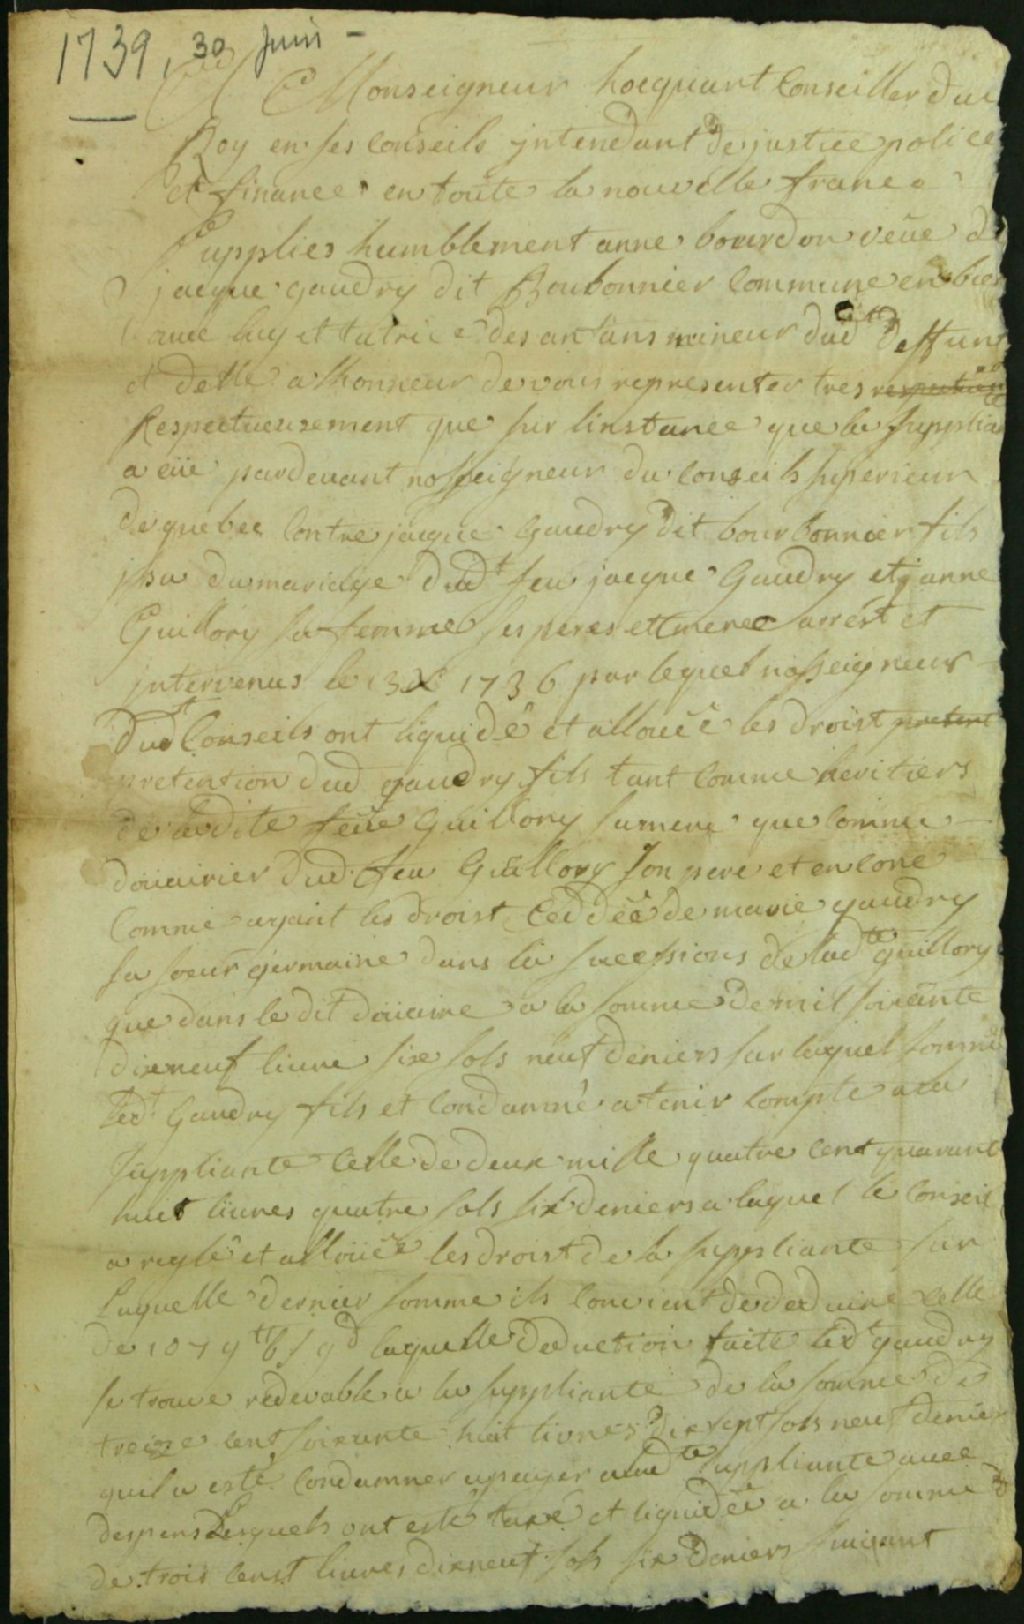 1739, 30 Juin -
A Monseigneur hocquart Conseiller du
Roy en ses Conseils jntendant de justice police
et finance en toute la nouvelle france
Supplies humblement anne bourdon veue de
jacque gaudry dit Bourbonnier Commune en bien
avec luy et tutrice des anfans mineur dud deffun
et delle a lhonneur de vous representer tres
Respectueusement que sur linstance que la Supplia
a eüe pardevant nosseigneur du Conseils superieur
de quebec Contre jacque Gaudry dit bourbonnier fils
jssu du mariage dudt feu jacque Gaudry et janne
Guillory sa femme ses peres et meree arrést et
jntervenus le 13 Xe 1736 par lequel nosseigneurs
dudt Conseils ont liquidé et alloüéé les droist pretent
pretention dud gaudry fils tant Comme heritiers
de ladite feüe Guillory sa mere que Comme
doüairier dud. feu Guillory son pere et encore
Comme ayant les droist Ceddéé de marie gaudry
sa soeur germaine dans la successions de ladte guillory
que dans le dit doüaire a la somme de mil soixante
dixneuf livre six sols neuf deniers sur laquel somme
ledt Gaudry fils et Condamné a tenir Compte a la
Suppliante Celle de deux mille quatre cent quarant
huit livres quatre sols six deniers a laquel le Conseil
a reglé et alloüéé les droist de la suppliante sur
Laquelle dernier somme ils Convient de deduire Celle
de 1079tt 6s 9d laquelle deduction faite ledt gaudry
se trouve redevable a la suppliante de la somme de
treize cent soixante huit livres dix sept sols neuf denier
quil a esté Condamner a payer a ladte suppliante avec
despens Lesquels ont esté taxé et liquidéé a la somme
de trois Censt livres dixneuf sols six deniers suivant